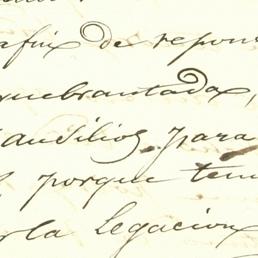 afin de repon
quebrantada,
auxilios para
porque ten
la Legacion